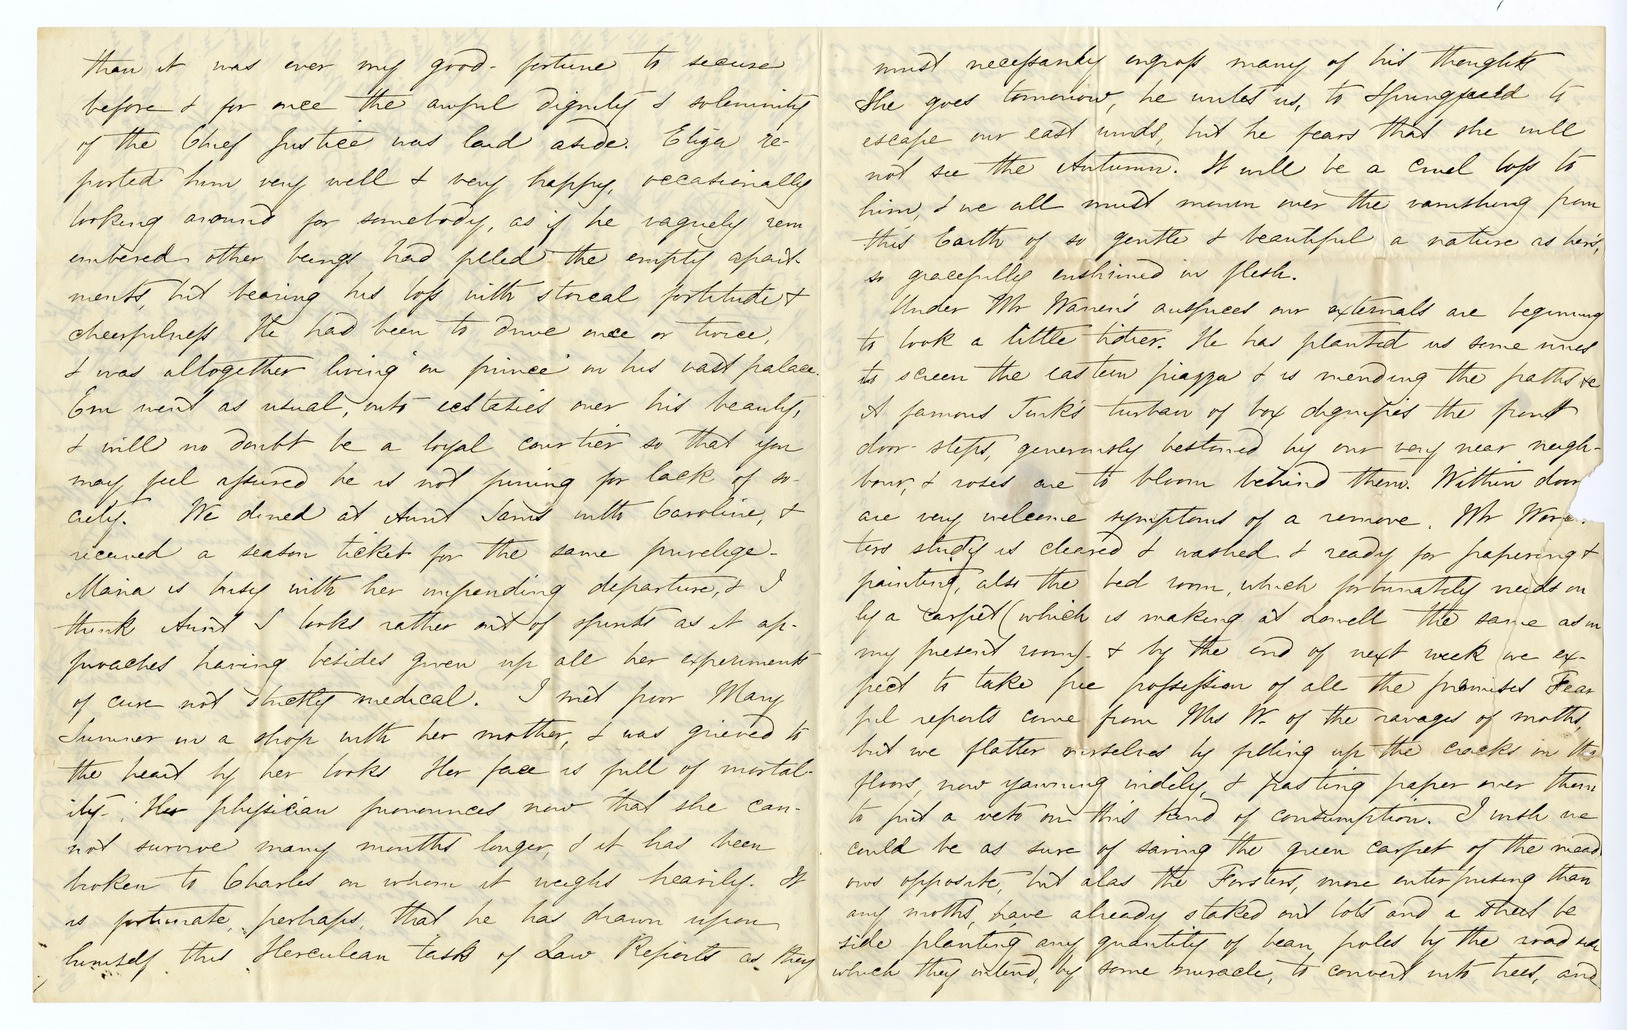 than it was ever my good- fortune to secure
before & for once the awful dignity & solemnity
of the Chief Justice was laid aside. Eliza re-
ported him very well & very happy, occasionally
looking around for somebody, as if he vaguely rem
embered other beings had filled the empty apart-
ments, but bearing his loss with stoical fortitude &
cheerfulness He had been to drive once or twice,
& was altogether living "en prince" in his vast palace.
Em went as usual, into ecstasies over his beauty,
& will no doubt be a loyal courtier so that you
may feel assured he is not pining for lack of so-
ciety. We dined at Aunt Sam's with Caroline, &
received a season ticket for the same privelege.
Maria is busy with her impending departure, & I
think Aunt S looks rather out of spirits as it ap-
proaches having besides given up all her experiments
of cure not strictly medical. I met poor Mary
Sumner in a shop with her mother, & was grieved to
the heart by her looks Her face is full of mortal-
ity. Her physician pronounces now that she can-
not survive many months longer, & it has been
broken to Charles on whom it weighs heavily. It
is fortunate, perhaps, that he has drawn upon
himself this Herculean task of Law Reports as they
must necessarily engross many of his thoughts
She goes tomorrow, he writes us, to Springfield to
escape our east winds, but he fears that she will
not see the Autumn. It will be a cruel loss to
him, & we all must mourn over the vanishing from
this Earth of so gentle & beautiful a nature as her's,
so gracefully enshrined in flesh.
Under Mr Warren's auspices our externals are beginning
to look a little tidier. He has planted us some vines
to screen the eastern piazza & is mending the paths &c
A famous Turk's turban of box dignifies the front
door- steps, generously bestowed by our very near neigh-
bour, & roses are to bloom behind them. Within door
are very welcome symptoms of a remove. Mr
ters study is cleared & washed & ready for papering &
painting, also the bed room, which fortunately needs on
ly a carpet (which is making at Lowell the same as in
my present room) & by the end of next week we ex-
pect to take free possession of all the premises Fear
ful reports come from Mrs W. of the ravages of moths,
but we flatter ourselves by filling up the cracks in the
floors, now yawning widely, & pasting paper over them
to put a veto on this kind of consumption. I wish we
could be as sure of saving the green carpet of the mead
ows opposite, but alas the Forsters, more enterprising than
any moths, have already staked out lots and a street be
side planting any quantity of bean poles by the road side
which they intend, by some miracle, to convert into trees, and